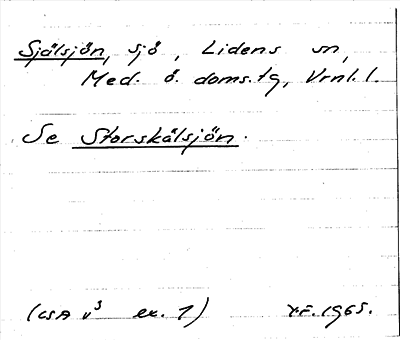 Själsjön, sjö, Lidens sn,
Med. ö. doms.tg, Vrnl. l.
Se Storskålsjön.
(LSA v³ ex. 1) Y.F. 1965.